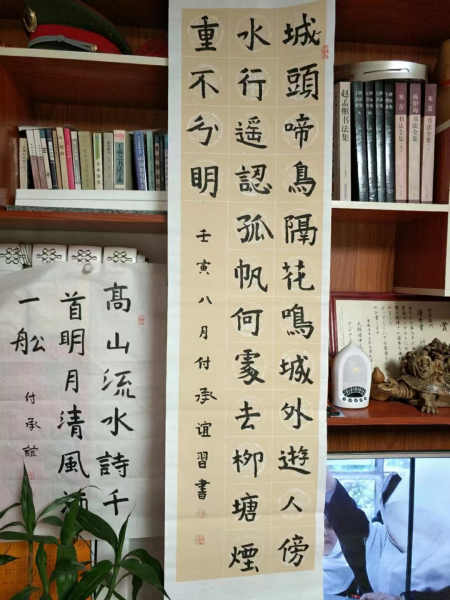 城頭啼鳥隔花鳴城外遊人傍
水行遥認孤帆何處去柳塘煙
重不分明
壬寅八月付承誼習書
髙山流水詩千
首明月清風酒
一船
付承誼
赵孟頫书法集